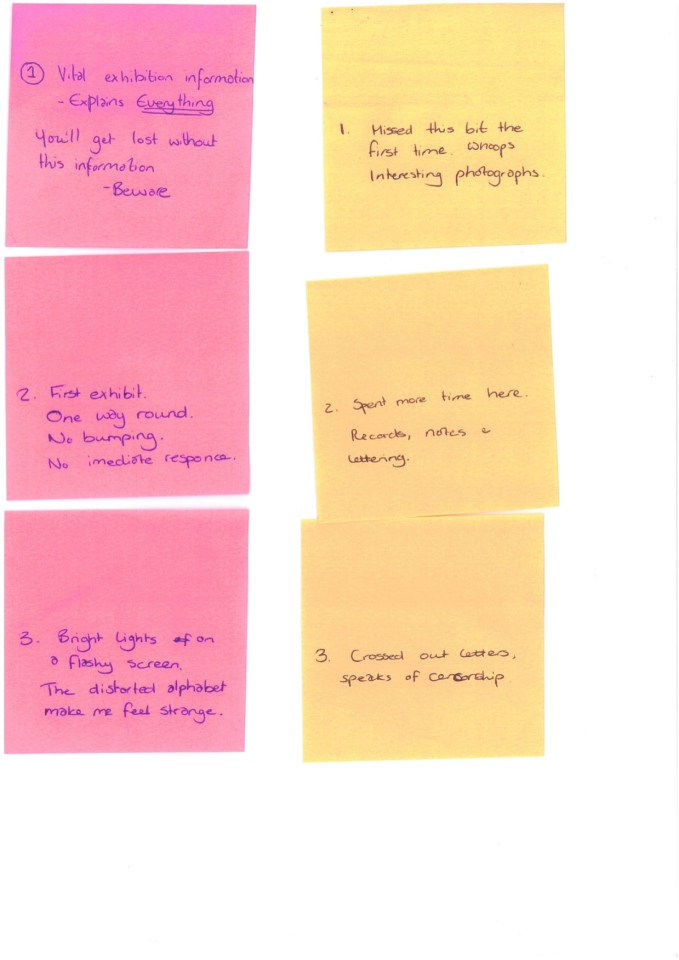 ① Vital exhibition information
- Explains Everything
You'll get lost without
this information
- Beware
2. First exhibit.
One way round.
No bumping.
No imediate responce.
3. Bright lights on
a flashy screen.
The distorted alphabet
make me feel strange.
1. Missed this bit the
first time. Whoops
Interesting photographs.
2. Spent more time here.
Records, notes &
lettering.
3. Crossed out letters,
speaks of cencorship